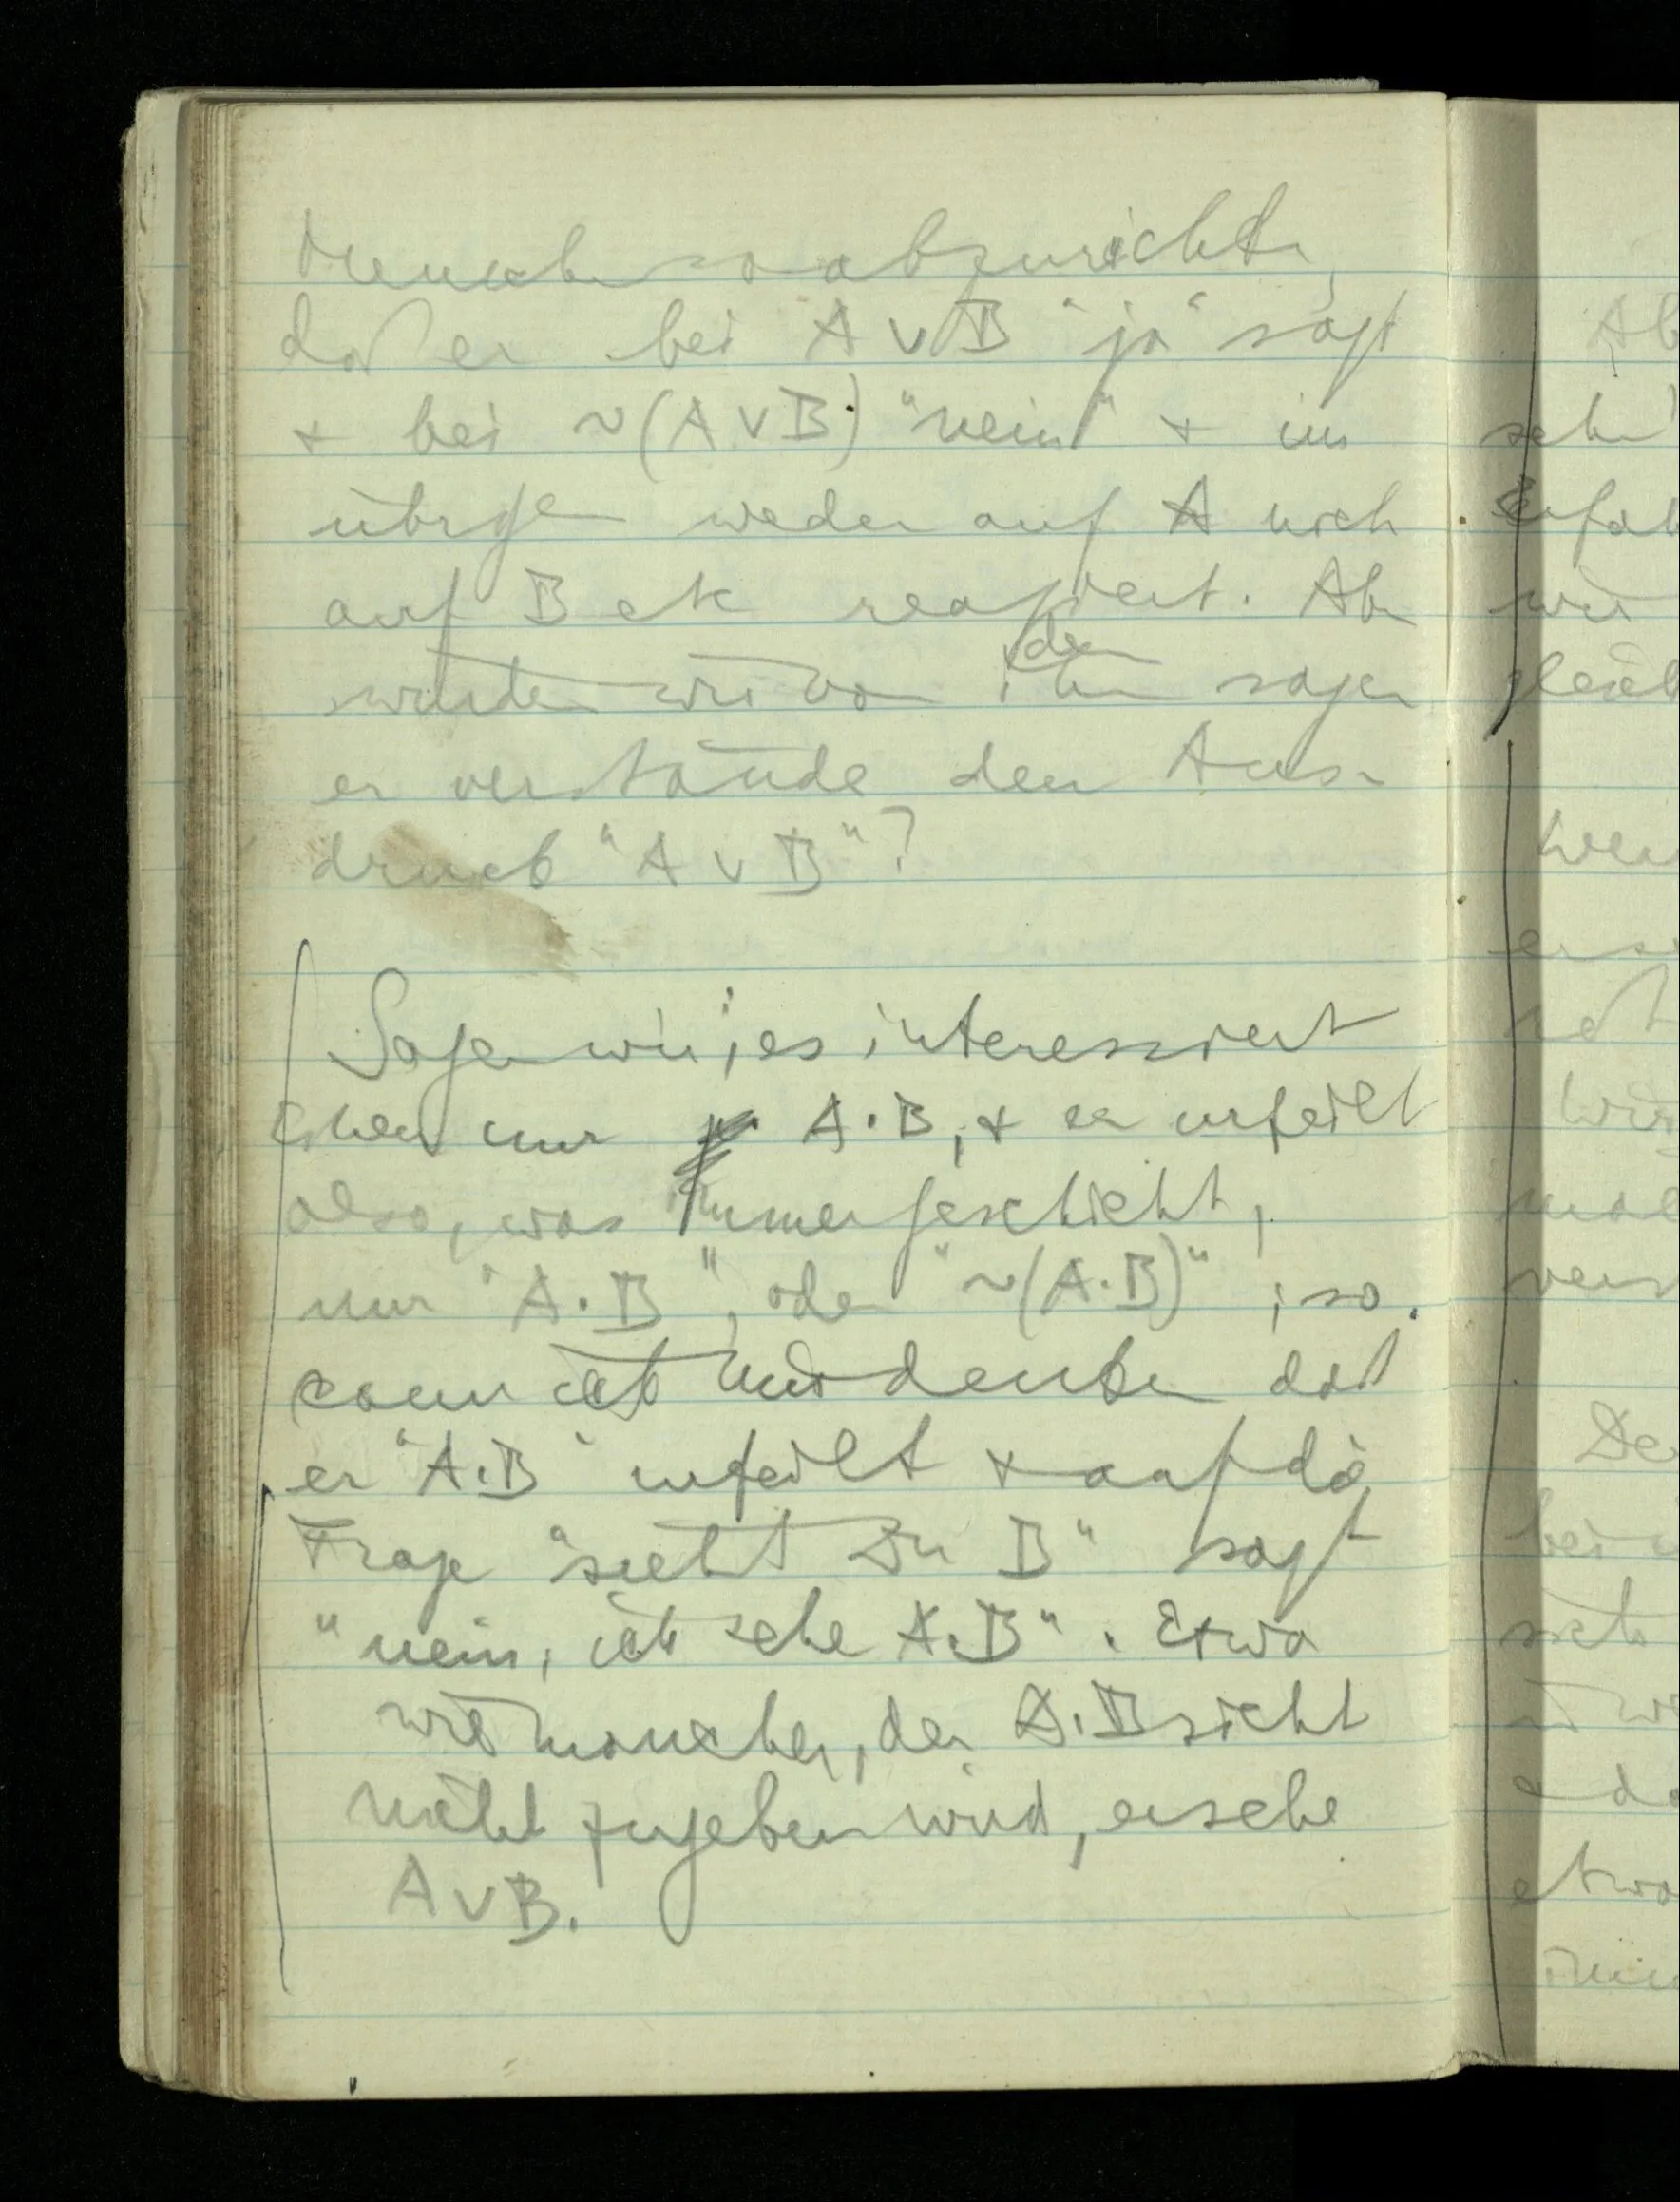 Menschen so abzurichten,
daß er bei A ∨ B "ja" sagt
& bei ~(A ∨ B) "nein" & im
übrigen weder auf A noch
auf B etc reagiert. Aber
würden wir von dem sagen
er verstünde den Aus-
druck "A ∨ B"?
Sagen wir, es interessiert
Einen nur A.B, & er urteilt
also, was immer geschieht,
nur "A.B", oder "~(A.B)"; so
kann ich mir denken daß
er "A.B" urteilt & auf die
Frage "siehst Du B" sagt
"nein, ich sehe A.B". Etwa
wie mancher, der A.B sieht
nicht zugeben wird, er sehe
A ∨ B.